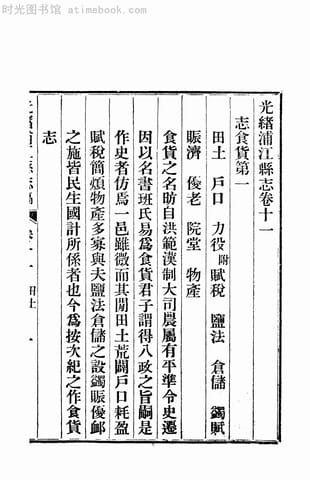 时光图书馆 atimebook.com
光緒浦江縣志卷十一
志食貨第一
田土 戶口 力役附 賦稅 鹽法 倉儲 蠲賦
賑濟 優老 院堂 物產
食貨之名昉自洪範漢制大司農屬有平準令史遷
因以名書班氏易爲食貨君子謂得八政之旨嗣是
作史者仿焉一邑雖微而其閒田土荒闢戶口耗盈
賦稅簡煩物產多寡與夫鹽法倉儲之設蠲賑優卹
之施皆民生國計所係者也今爲按次紀之作食貨
志
田土 一